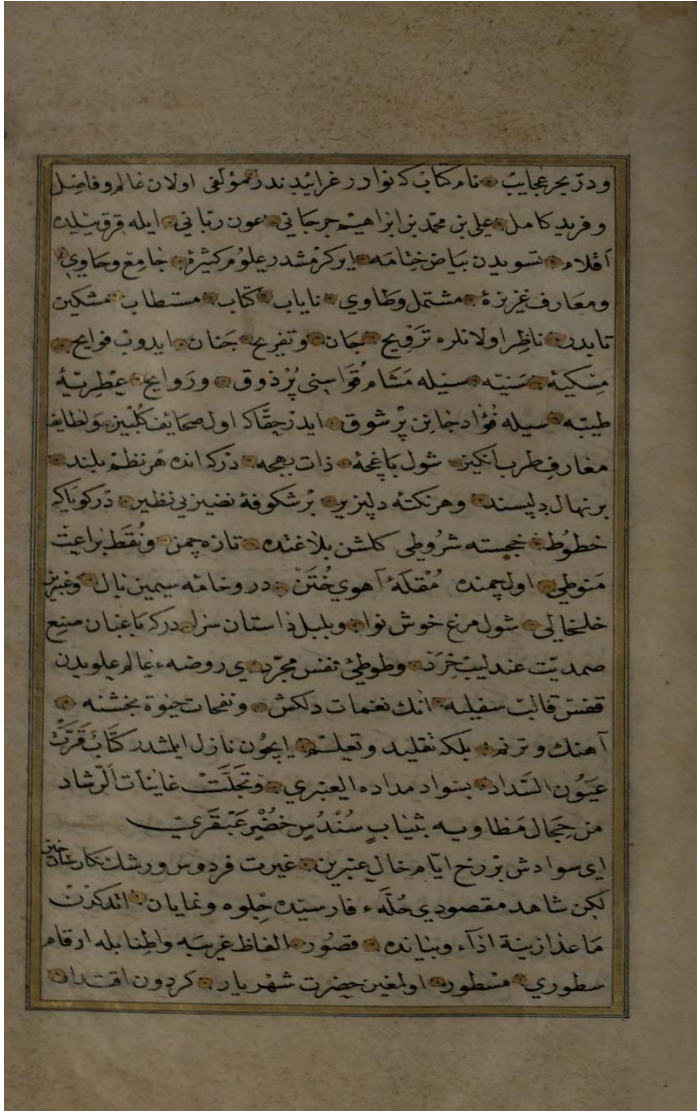 ودر بحر عجايب نام كتاب كه نوادر غرائبدندر مؤلفى اولان عالم و فاضل
و فريد كامل على بن محمد بن ابراهيم جرجانى عون ربانى ايله قرق ييلده
اقلام تسويدن بياض ختامه يركرمشدر علوم كثيرة جامع و حاوى
ومعارف غزيزة مشتمل و طاوى ناياب كتاب مستطاب مشكين
تابدر ناظر اولانلره ترويح جان و تفريح جنان ايدوب فوايح
مسكية سنيه سيله مشام قواسنى پر ذوق و روايح عطرية
طيبه سيله فؤاد جانن پر شوق ايدر حقّا كه اول صحايف كلبيز و لطايف
معارف طرب انكيز شول باغچهٔ ذات بهجه دركه انده هر نظم بلند
بر نهال دلپسند و هر نكتهٔ دلپزير بر شكوفهٔ نضير بى نظير در كوياكه
خطوط خجسته شروطى كلشن بلاغتده تازه چمن و نقط براعت
منوطى اول چمنده مقلهٔ آهوى ختن در و خامه سيمين نال و عنبرين
خلخالى شول مرغ خوش نوا و بلبل داستان سرا دركه باغبان منبع
صمديت عندليب خرد و طوطئ نفس مجردى روضهء عالم علويدن
قفس قالب سفليه انك نغمات دلكش و نفحات حيوة بخشنه
آهنك و ترنم بلكه تقليد و تعليم ايچون نازل ايلشدر كتاب قرّت
عيون السداد بسواد مداده العبرى و تجلّت غاينات الرشاد
من حجال مطاويه بثياب سندس خضر عبقرى
اى سوادش بر رخ ايام خال عنبرين غيرت فردوس و رشك نكارستان چين
لكن شاهد مقصودى حلّهء فارسيده جلوه و نمايان اندكدن
ماعدا زينة اداء و بيانده قصور الفاظ غريبه و اطناب ايله ارقام
سطورى مسطور اولمغين حضرت شهريار كردون اقتدار